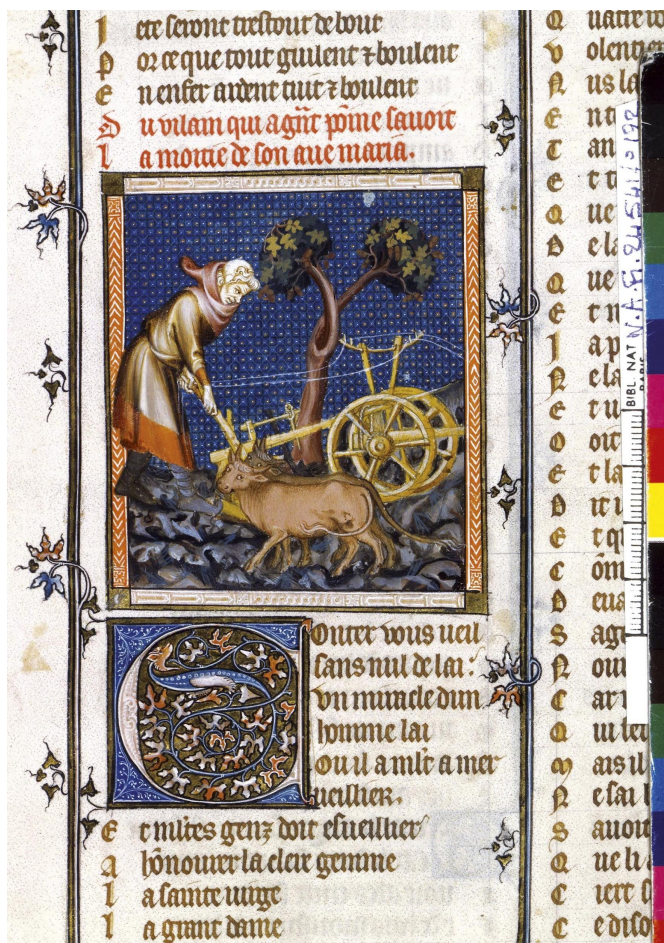 I ere seront trestout de bout
P or ce que tout giulent ⁊ boulent
E n enfer ardent tuit ⁊ boulent
D u vilain qui a gñt poĩne savoit
L a moitie de son aue maria.
C onter vous ueil
sans nul delai:
vn miracle dun
homme lai
Ou il a mlt a mer
ueillier.
E t mltes genz doit esueillier
A hõnourer la clere gemme
L a sainte uirge
L a grant dame
Q uatre
V olentier
N us la
E nt
T an
E t
Q ue
D e la
Q ue
E t n
I a p
N e la
E t u
O nt
E t la
D
E t qu
C õm
D eua
S agi
N oui
C ar
Q ui
M ais il
N e sai
S auoit
Q ue li
C iert s
C e diso
BIBL NAT
PARIS
N.A.Fr. 24541 fo 192